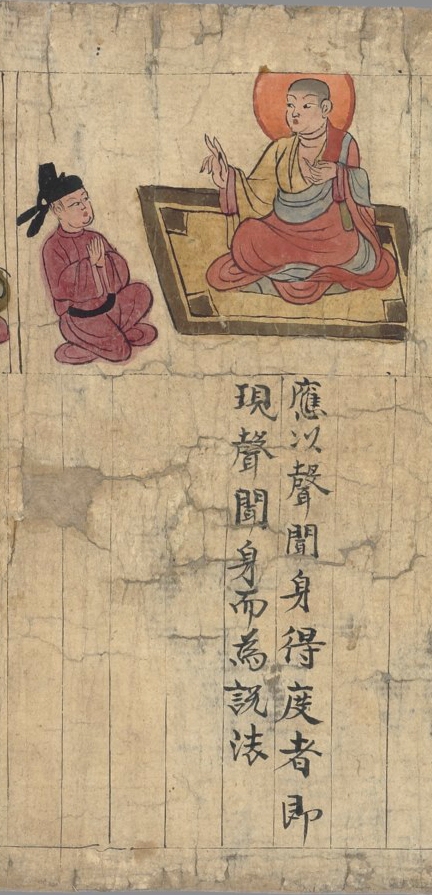 應以聲聞身得度者即
現聲聞身而為說法